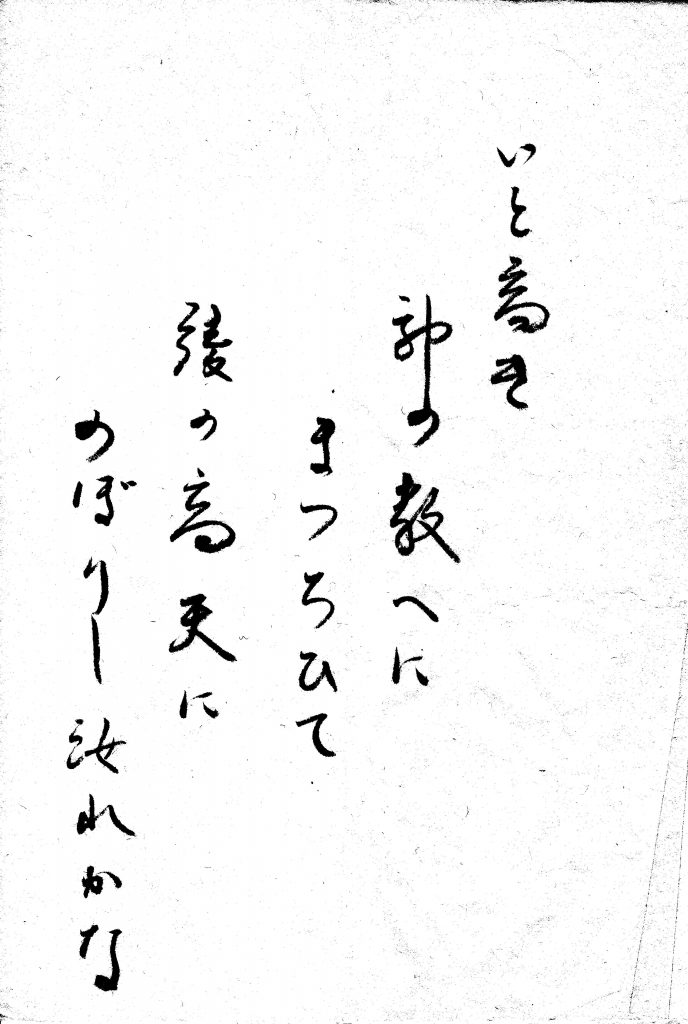 いと高き
神の教へに
まつろひて
綾の高天に
のぼりし汝れかな